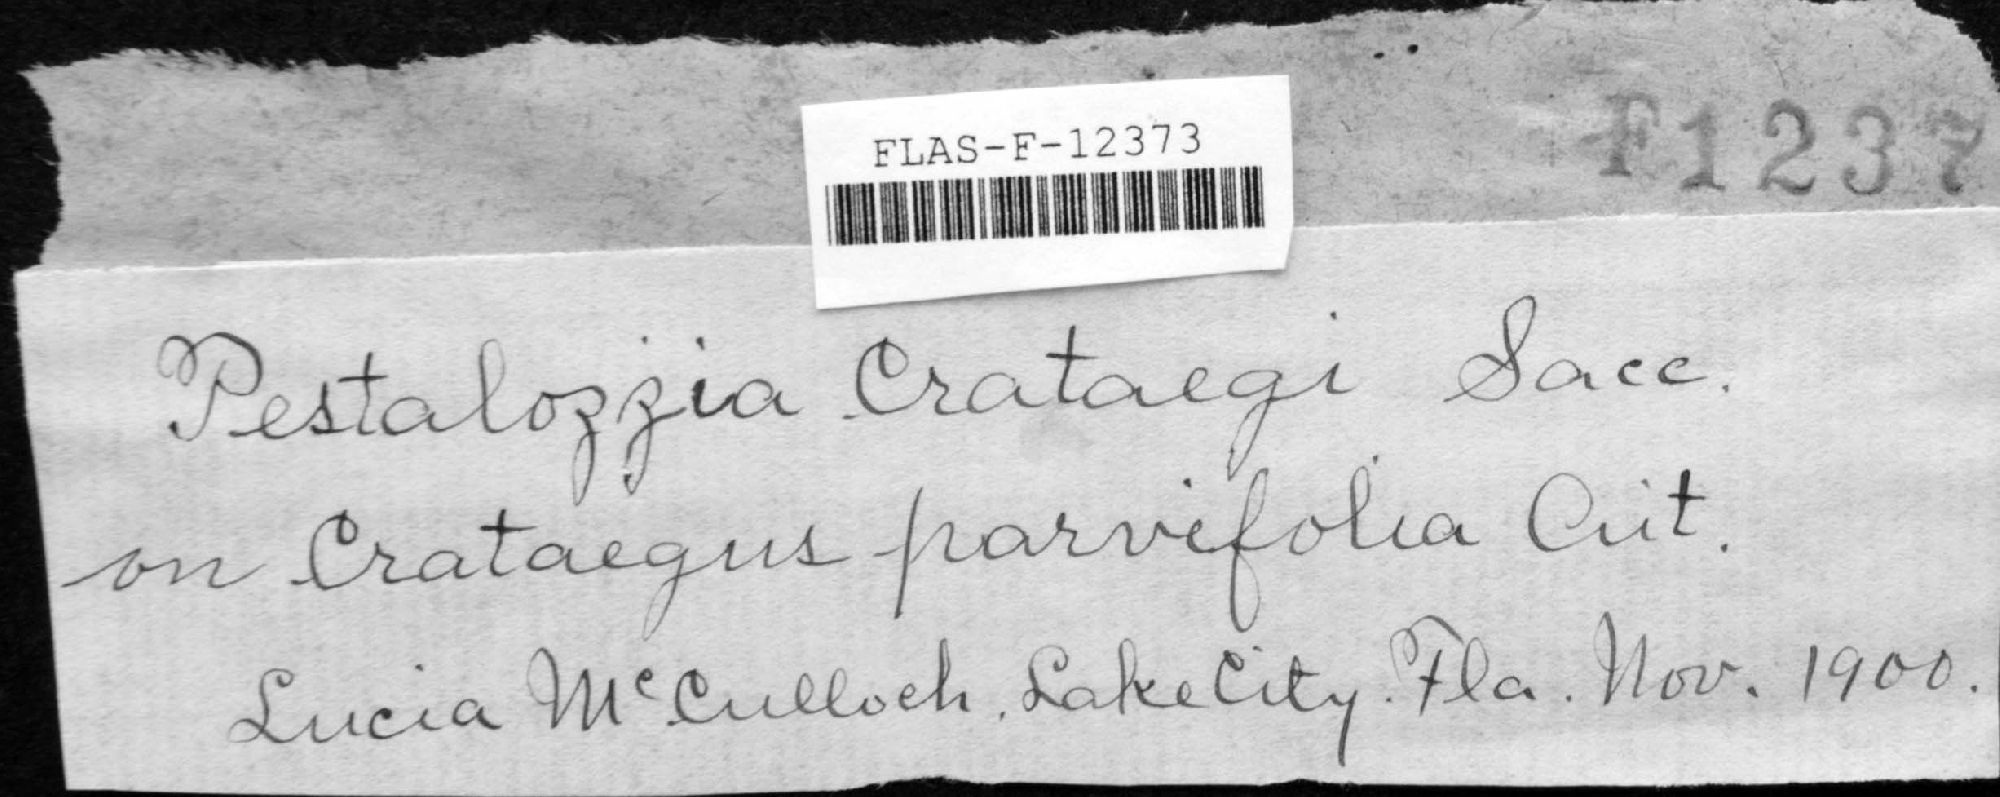 FLAS-F-12373
F1237
Pestalozzia Crataegi Sacc.
on Crataegus parvifolia Ait.
Lucia McCulloch. Lake City. Fla. Nov. 1900.